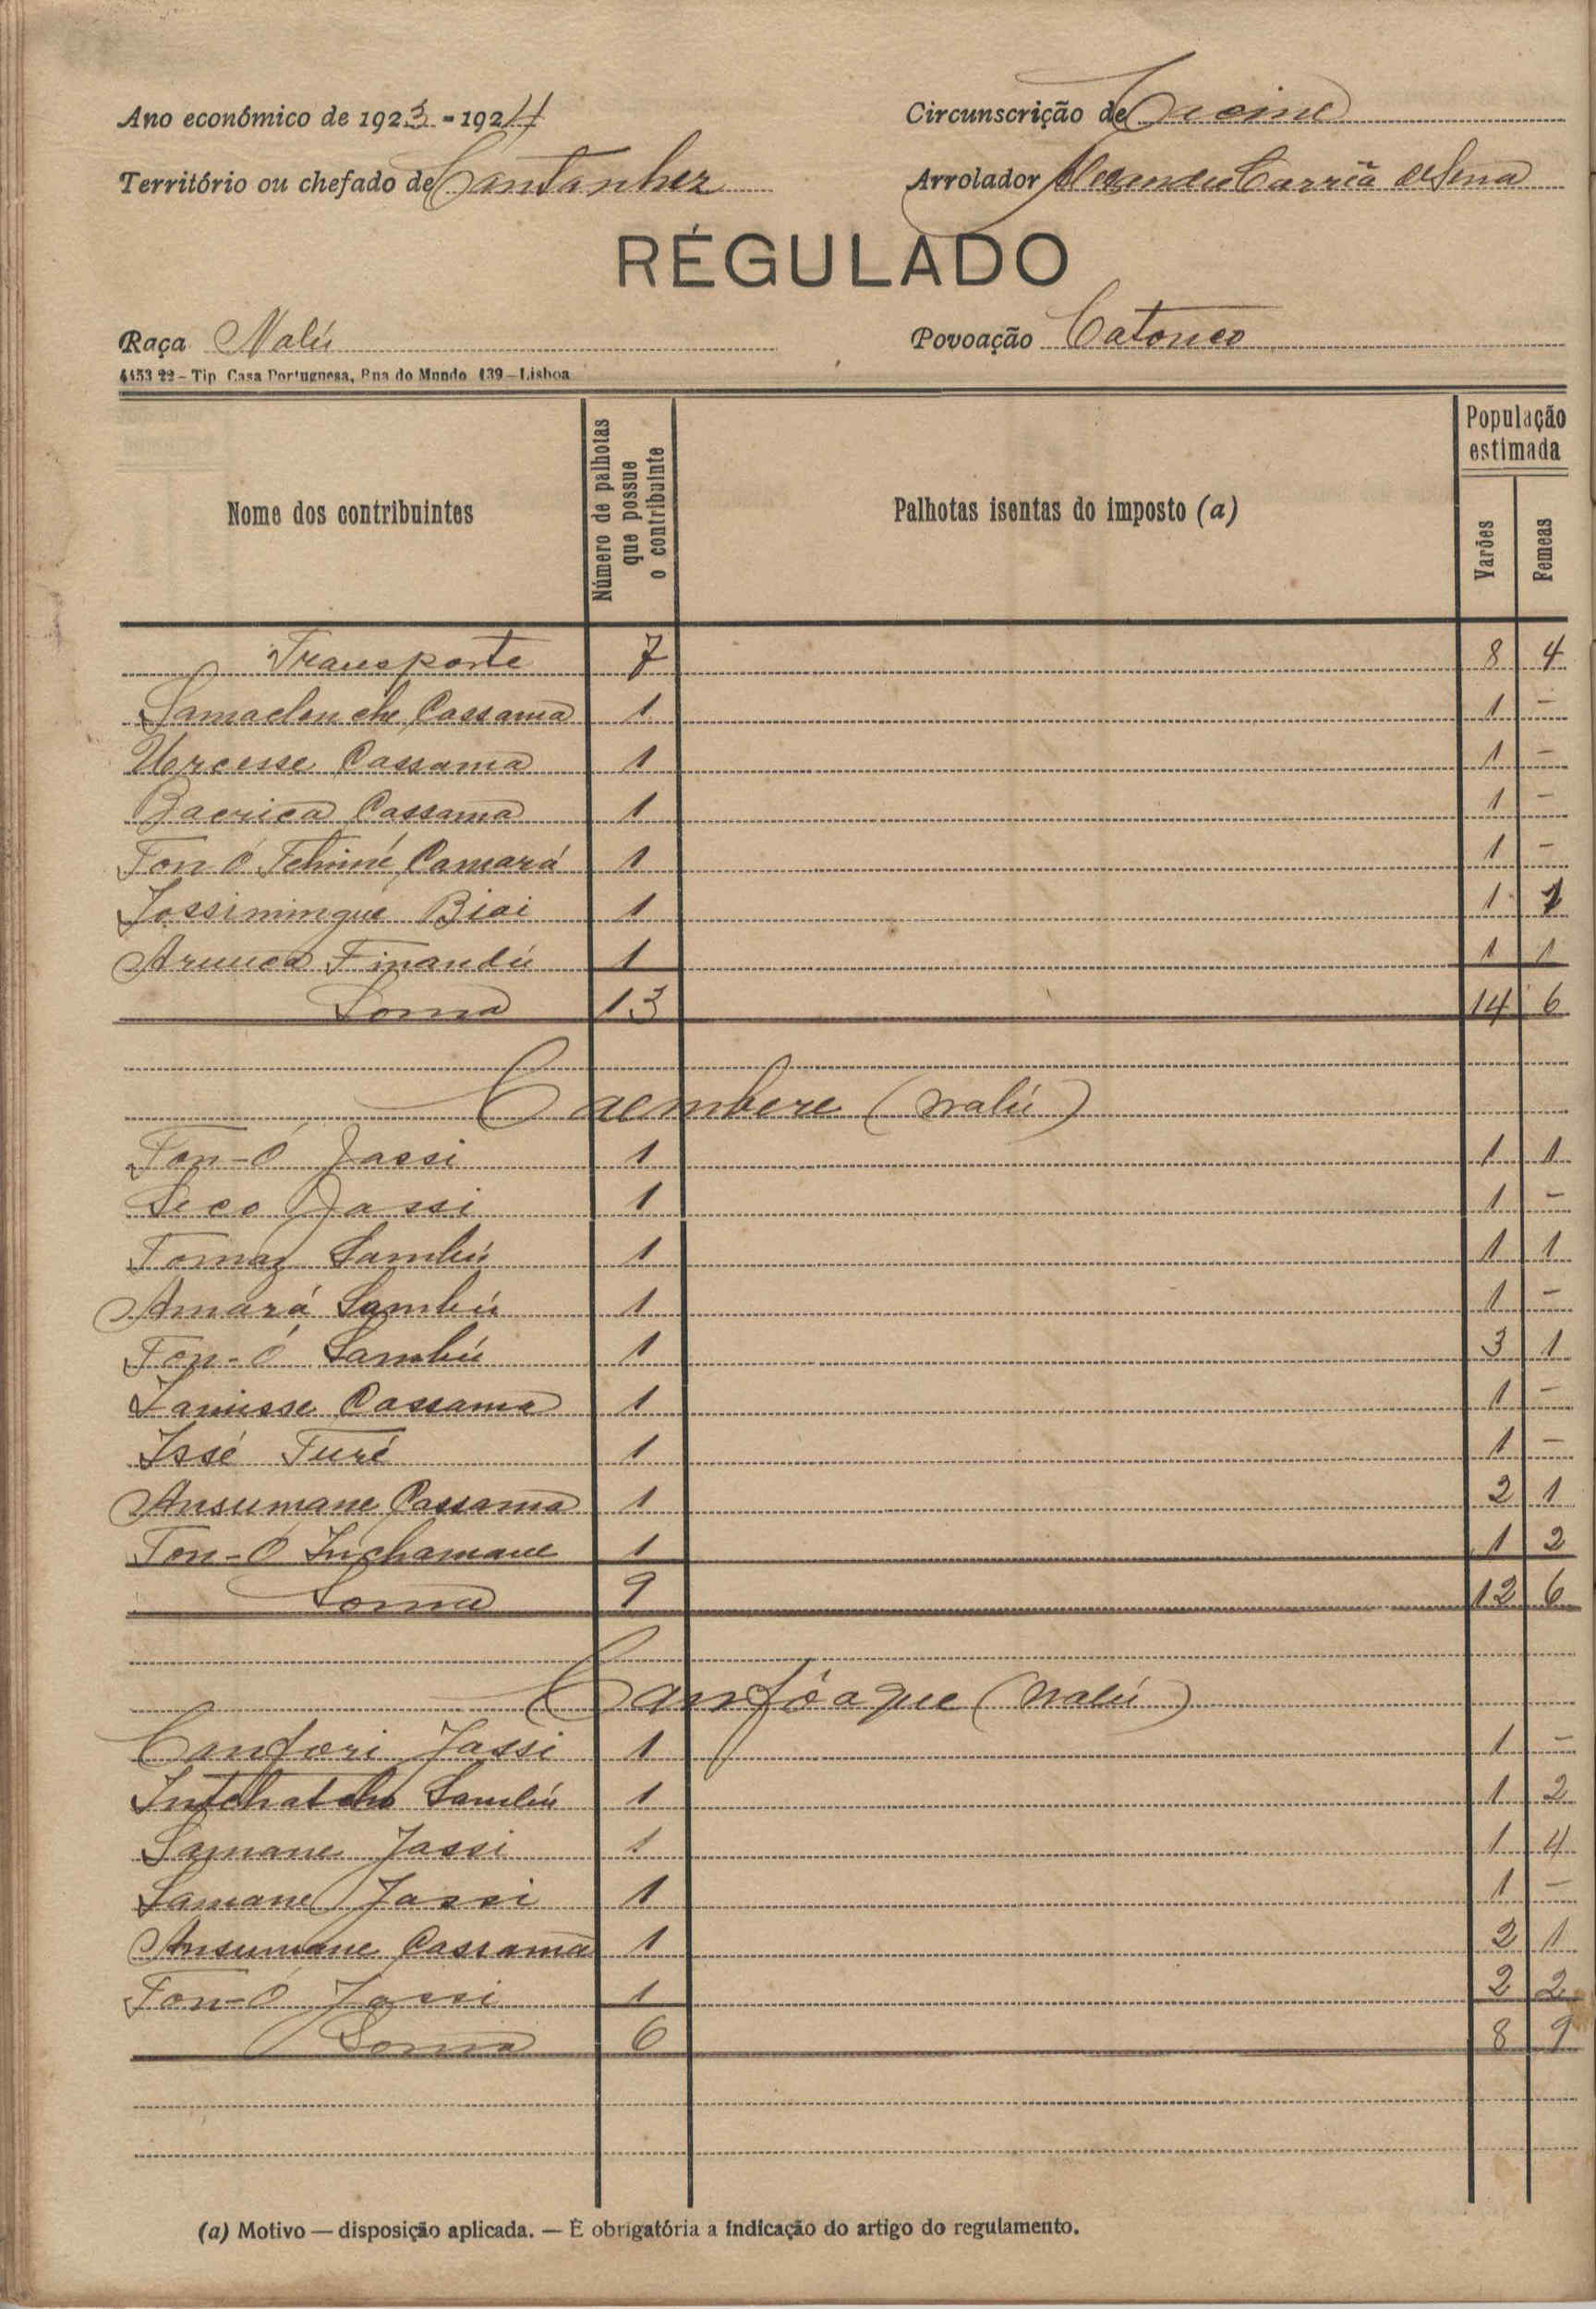 Ano económico de 1923-1924
Circunscrição de Cacine
Território ou chefado de Cantanhez
Arrolador Alexandre Carreia de Sena
RÉGULADO
Raça Nalú
Povoação Catouco
4453 22 – Tip. Casa Portuguesa, Rua do Mundo 139 – Lisboa
Nome dos contribuintes
Número de palhotas que possue o contribuinte
Palhotas isentas do imposto (a)
População estimada
Varões
Femeas
Transporte 7 8 4
Cassama 1 1 -
Cassama 1 1 -
Cassama 1 1 -
Ton Ó Tchimé Camará 1 1 -
Jossiningue Biai 1 1 1
Aruuca Finandú 1 1 1
Soma 13 14 6
Caembere (nalú)
Ton-Ó Jassi 1 1 1
Seco Jassi 1 1 -
Tomaz Sambú 1 1 1
Amará Sambú 1 1 -
Ton-Ó Sambú 1 3 1
Cassama 1 1 -
Issé Turé 1 1 -
Ansumane Cassama 1 2 1
Ton-Ó Inchamane 1 1 2
Soma 9 12 6
Canfóaque (nalú)
Canfori Jassi 1 1 -
Intchatcho Sambú 1 1 2
Samane Jassi 1 1 4
Lamane Jassi 1 1 -
Ansumane Cassama 1 2 1
Ton-Ó Jassi 1 2 2
Soma 6 8 9
(a) Motivo — disposição aplicada. — É obrigatória a indicação do artigo do regulamento.